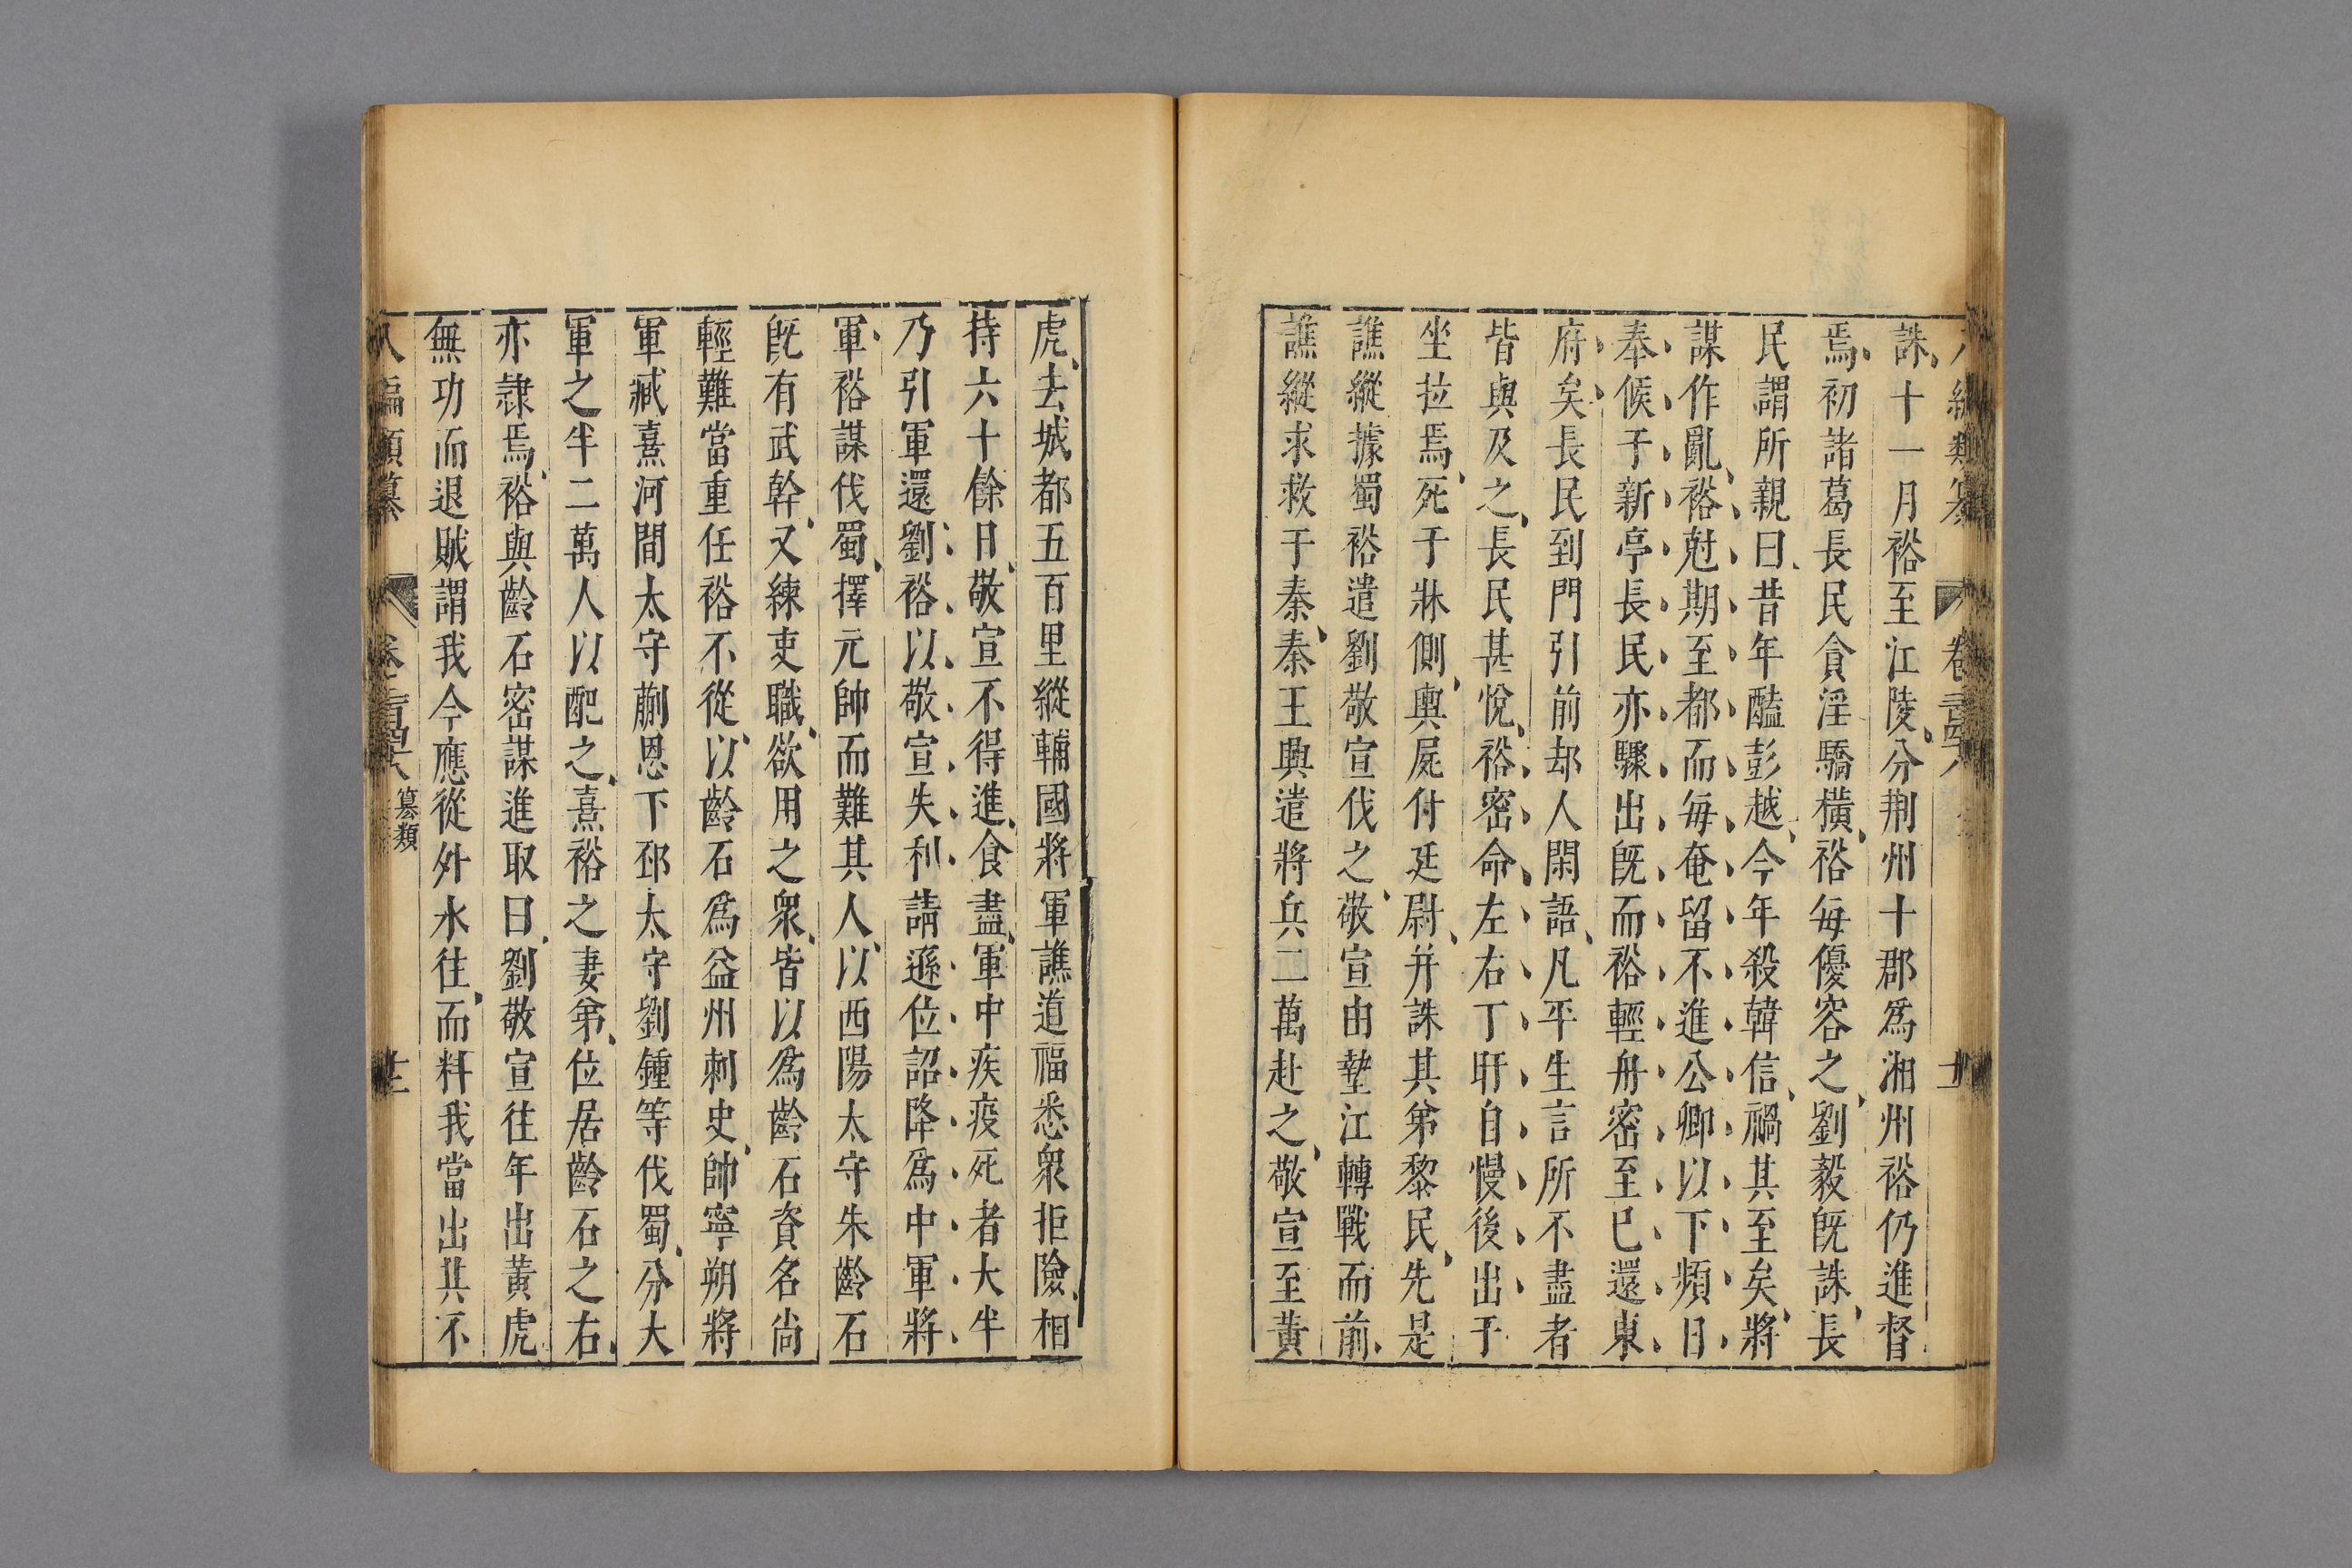 誅十一月裕至江陵分荆州十郡爲湘州裕仍進督
焉初諸葛長民貪淫驕橫裕每優容之劉毅旣誅長
民謂所親曰昔年醢彭越今年殺韓信禍其至矣將
謀作亂裕尅期至都而每奄留不進公卿以下頻日
奉候于新亭長民亦驟出旣而裕輕舟密至已還東
府矣長民到門引前却人閑語凡平生言所不盡者
皆與及之長民甚悅裕密命左右丁旿自幔後出于
坐拉焉死于牀側輿屍付廷尉并誅其弟黎民先是
譙縱據蜀裕遣劉敬宣伐之敬宣由墊江轉戰而前
譙縱求救于秦秦王興遣將兵二萬赴之敬宣至黃
虎去城都五百里縱輔國將軍譙道福悉衆拒險相
持六十餘日敬宣不得進食盡軍中疾疫死者大半
乃引軍還劉裕以敬宣失利請遜位詔降爲中軍將
軍裕謀伐蜀擇元帥而難其人以西陽太守朱齡石
旣有武幹又練吏職欲用之衆皆以爲齡石資名尚
輕難當重任裕不從以齡石爲益州刺史帥寧朔將
軍臧熹河間太守蒯恩下邳太守劉鍾等伐蜀分大
軍之半二萬人以配之熹裕之妻弟位居齡石之右
亦隸焉裕與齡石密謀進取曰劉敬宣往年出黃虎
無功而退賊謂我今應從外水往而料我當出其不
八編類纂 篡類